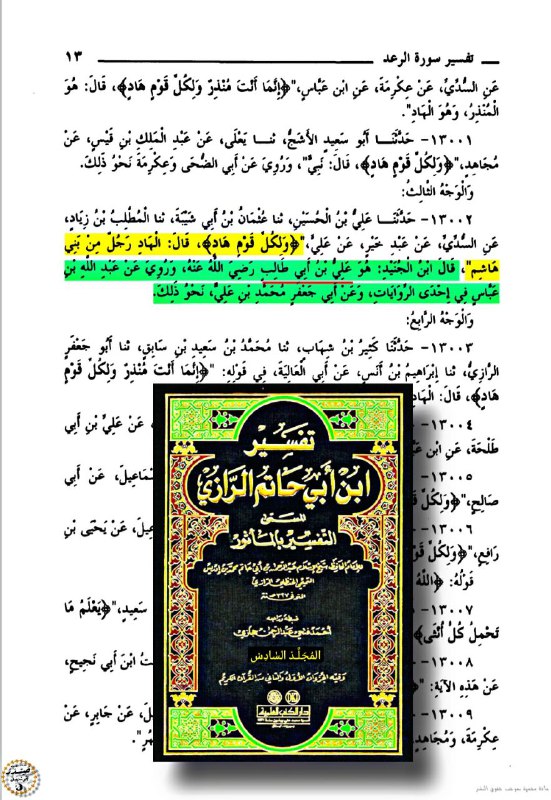 تفسير سورة الرعد ١٣
عَنِ السُّدِّيِّ، عَنْ عِكْرِمَةَ، عَنِ ابْنِ عَبَّاسٍ،"﴿إِنَّمَا أَنْتَ مُنْذِرٌ وَلِكُلِّ قَوْمٍ هَادٍ﴾، قَالَ: هُوَ
الْمُنْذِرُ، وَهُوَ الْهَادِ".
١٣٠٠١- حَدَّثَنَا أَبُو سَعِيدٍ الأَشَجُّ، ثنا يَعْلَى، عَنْ عَبْدِ الْمَلِكِ بْنِ قَيْسٍ، عَنْ
مُجَاهِدٍ،"﴿وَلِكُلِّ قَوْمٍ هَادٍ﴾، قَالَ: نَبِيٌّ"، وَرُوِيَ عَنْ أَبِي الضُّحَى وَعِكْرِمَةَ نَحْوُ ذَلِكَ.
وَالْوَجْهُ الثَّالِثُ:
١٣٠٠٢- حَدَّثَنَا عَلِيُّ بْنُ الْحُسَيْنِ، ثنا عُثْمَانُ بْنُ أَبِي شَيْبَةَ، ثنا الْمُطَّلِبُ بْنُ زِيَادٍ،
عَنِ السُّدِّيِّ، عَنْ عَبْدِ خَيْرٍ، عَنْ عَلِيٍّ،"﴿وَلِكُلِّ قَوْمٍ هَادٍ﴾، قَالَ: الْهَادِ رَجُلٌ مِنْ بَنِي
هَاشِمٍ"، قَالَ ابْنُ الْجُنَيْدِ: هُوَ عَلِيُّ بْنُ أَبِي طَالِبٍ رَضِيَ اللَّهُ عَنْهُ، وَرُوِيَ عَنْ عَبْدِ اللَّهِ بْنِ
عَبَّاسٍ فِي إِحْدَى الرِّوَايَاتِ، وَعَنْ أَبِي جَعْفَرٍ مُحَمَّدِ بْنِ عَلِيٍّ، نَحْوُ ذَلِكَ.
وَالْوَجْهُ الرَّابِعُ:
١٣٠٠٣- حَدَّثَنَا كَثِيرُ بْنُ شِهَابٍ، ثنا مُحَمَّدُ بْنُ سَعِيدِ بْنِ سَابِقٍ، ثنا أَبُو جَعْفَرٍ
الرَّازِيُّ، ثنا إِبْرَاهِيمُ بْنُ أَنَسٍ، عَنْ أَبِي الْعَالِيَةِ، فِي قَوْلِهِ: "﴿إِنَّمَا أَنْتَ مُنْذِرٌ وَلِكُلِّ قَوْمٍ
هَادٍ﴾، قَالَ: الْهَادِ
١٣٠٠٤- عَنْ عَلِيِّ بْنِ أَبِي
طَلْحَةَ، عَنِ ابْنِ
١٣٠٠٥- عَنْ أَبِي
صَالِحٍ،"﴿وَلِكُلِّ
١٣٠٠٦- عَنْ يَحْيَى بْنِ
رَافِعٍ،"﴿وَلِكُلِّ قَوْ
قَوْلُهُ: ﴿اللَّهُ
١٣٠٠٧- سَعِيدٍ،"﴿يَعْلَمُ مَا
تَحْمِلُ كُلُّ أُنْثَى﴾
١٣٠٠٨- ابْنَ أَبِي نَجِيحٍ،
عَنْ هَذِهِ الآيَةِ: "﴿
١٣٠٠٩- عَنْ جَابِرٍ، عَنْ
عِكْرِمَةَ، وَمُجَاهِدٍ
تفسير
ابن أبي حاتم الرازي
المسمى
التفسير بالمأثور
ضبطه وراجعه
أحمد فتحي عبد الرحمن حجازي
المجلد السادس
دار الكتب العلمية